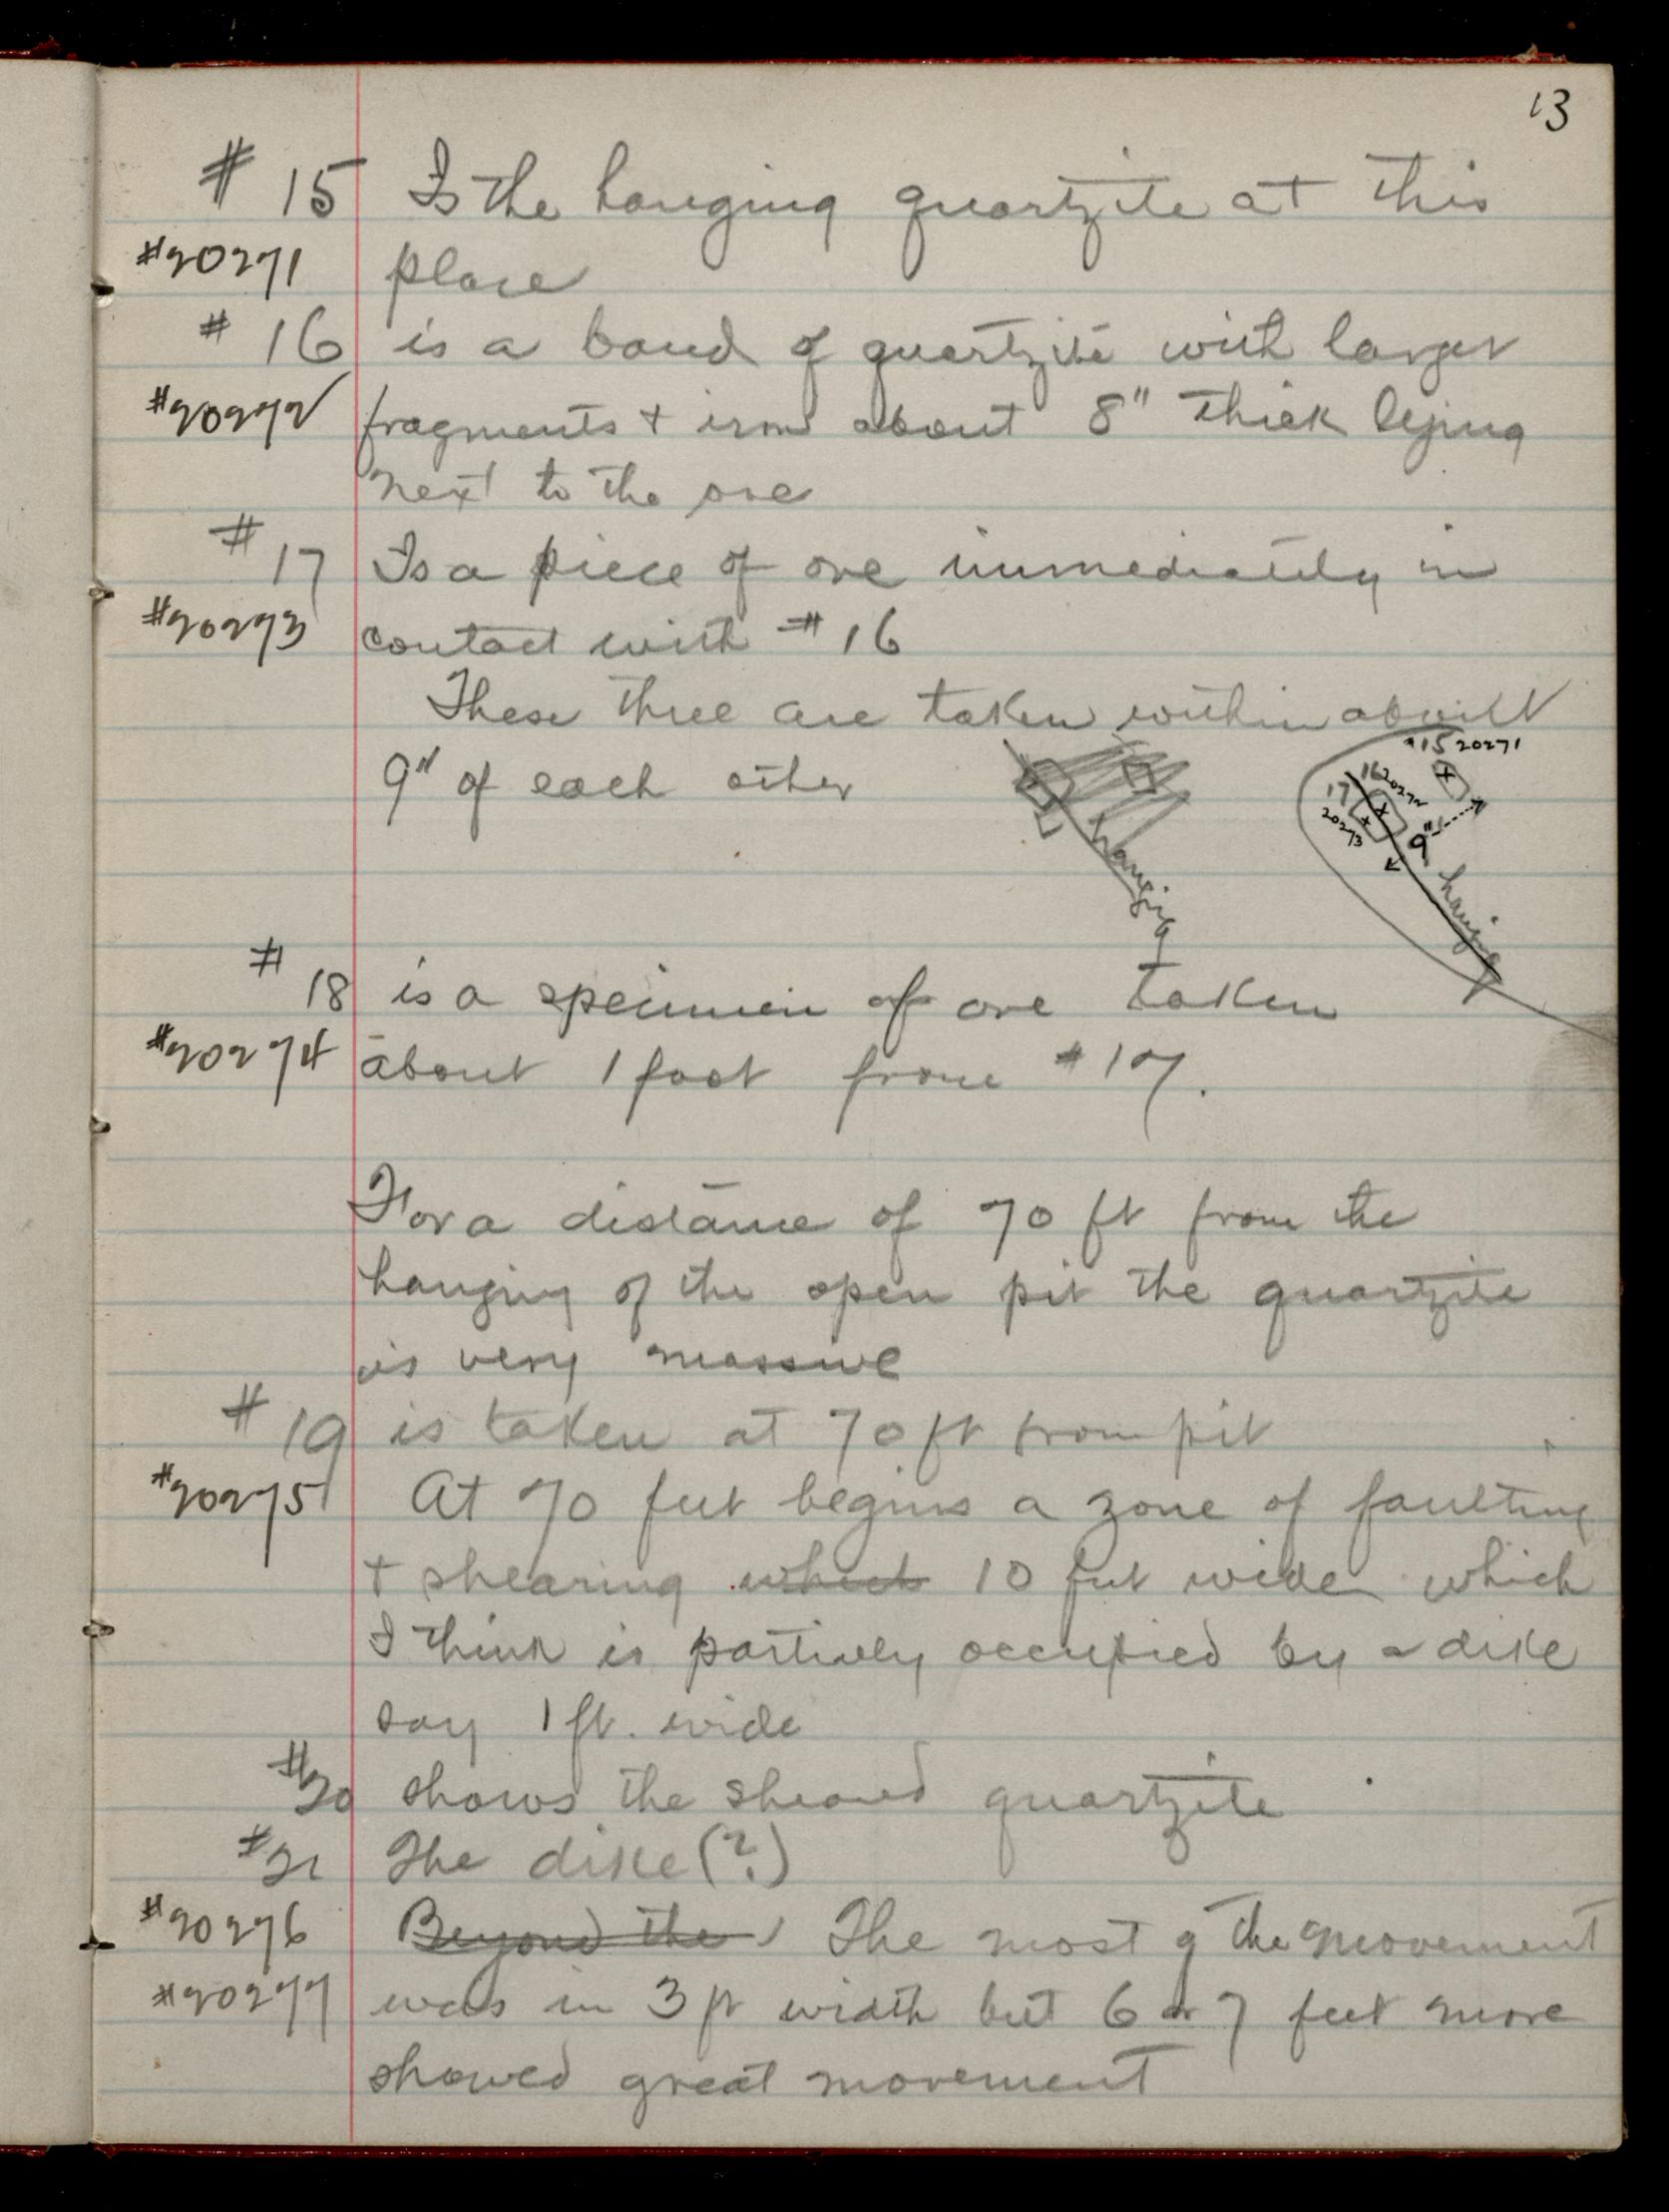 13
# 15 Is the hanging quartzite at this
#20271 place
# 16 is a band of quartzite with larger
#20272 fragments + iron about 8" thick lying
next to the ore
# 17 Is a piece of ore immediately in
#20273 contact with # 16
These three are taken within about
9" of each other
hanging
#15 20271
16 20272
17
20273
9"
hanging
# 18 is a specimen of ore taken
#20274 about 1 foot from #17.
For a distance of 70 ft from the
hanging of the open pit the quartzite
is very massive
# 19 is taken at 70 ft from pit
#20275 At 70 feet begins a zone of faulting
+ shearing which 10 feet wide which
I think is partively occupied by a dike
say 1 ft. wide
#20 shows the sheared quartzite
#21 The dike (?)
#20276 Beyond the The most of the movement
#20277 was in 3 ft width but 6 or 7 feet more
showed great movement